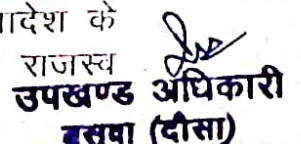 ादेश के
राजस्व
उपखण्ड अधिकारी
बसवा (दौसा)